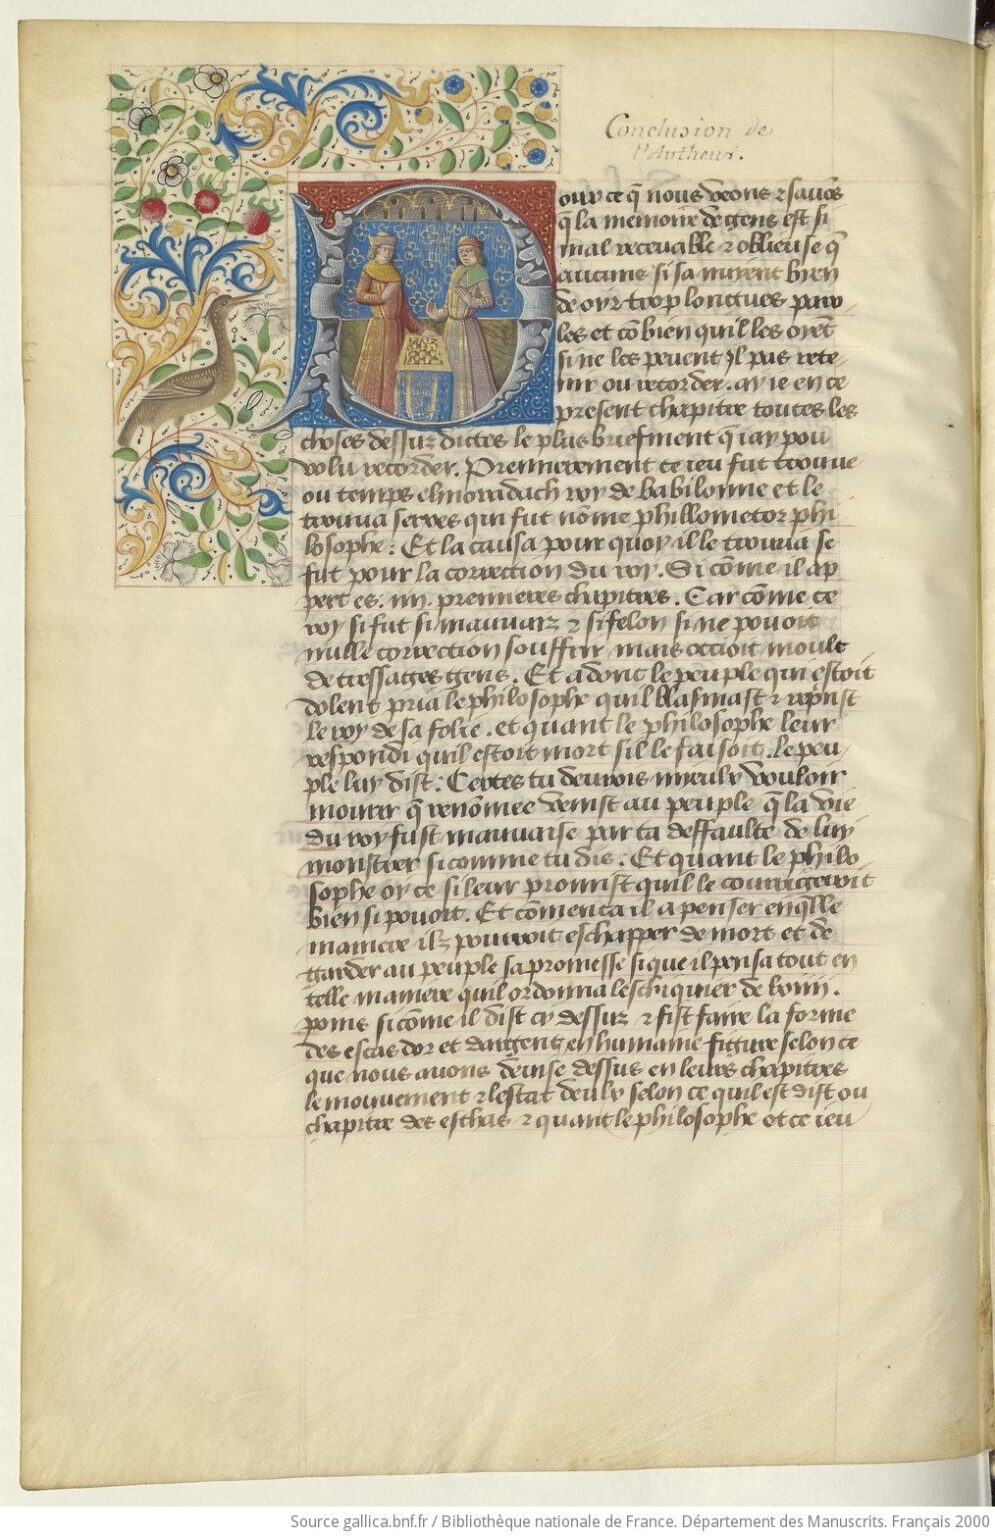 Conclusion de
l'Autheur.
our ce q̄ nous veons ⁊ sauōs
q̄ la memoire de gens est si
mal receuable ⁊ oblieuse q̄
aucuns si sa nuyent bien
de oyr trop longues paro
les et cōbien quil les oyēt
si ne les peuent Jl pas rete-
nir ou recorder. ay ie en ce
present chapitre toutes les
choses dessur dictes le plus briefment q̄ iay pou
volu recorder. Premierement ce ieu fut trouue
ou temps elmoradach roy de babilonne et le
trouua serses qui fut nōme phillometor phi
losophe: Et la causa pour quoy il le trouua se
fut pour la correction du roy. Si cōme il ap
pert es .iiii. premieres chapitres. Car cōme ce
roy si fut si mauuaiz ⁊ si felon si ne pouoit
nulle correction souffrir mais occioit moult
de tressages gens. Et a donc le peuple qui estoit
dolent pria le philosophe quil blasmast ⁊ reprist
le roy de sa folie. et quant le philosophe leur
respondi quil estoit mort sil le faisoit. le peu-
ple luy dist: Certes tu deurois mieulx vouloir
mourir q̄ renōmee venist au peuple q̄ la vie
du roy fust mauuaise par ta deffaulte de luy
monstrer si comme tu dis. Et quant le philo
sophe oy ce si leur promist quil le courrigeroit
bien si pouoit. Et cōmenca il a penser en q̄lle
maniere ilz pourroit eschapper de mort et de
garder au peuple sa promesse si que il pensa tout en
telle maniere quil ordonna leschiquier de lxiiii.
poins si cōme il dist cy dessuz ⁊ fist faire la forme
des escas dor et dargent en humaine figure selon ce
que nous auons deuise dessus en leurs chapitres
le mouuement ⁊ lestat deulx selon ce quil est dist ou
chapitre des eschas ⁊ quant le philosophe ot ce ieu
Source gallica.bnf.fr / Bibliothèque nationale de France. Département des Manuscrits. Français 2000